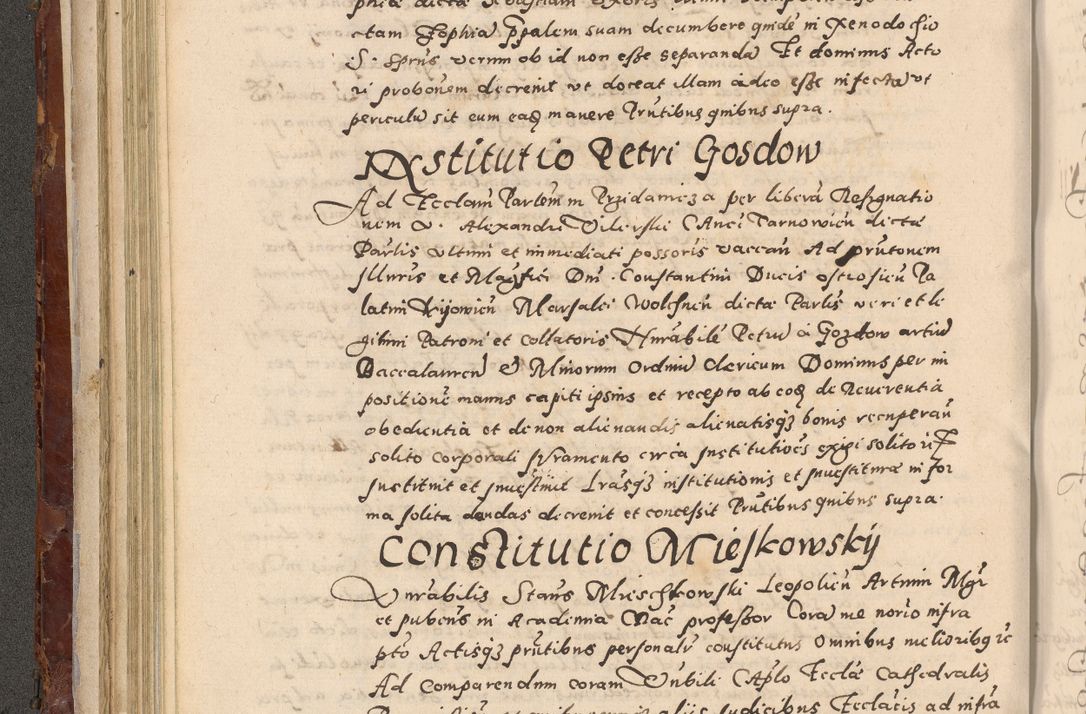 ctam Zophia ppalem suam decumbere quide in Xenodochio
S. Sprus verum ob id non esse separanda Et dominus Acto
ri probonem decrenit vt doceat illam adeo esse infecta vt
periculu sit cum eaq manere Pntibus quibus supra.
Institutio Petri Gosdow
Ad Eccleam Parlem in Przidamicza per libera Resignatio
nem V. Alexandri Vilerski Canci Tarnowien dictæ
Parlis vltimi et immediati possoris vaccan Ad pntonem
Illuris et Magfici Dni. Constantini Ducis ostrosien Pa
latini Kijowien Marsalci Wolhnen dictæ Parlis veri et le
gitimi Patroni et collatoris Hnrabile Petru a Gozdow artiu
Baccalaureu et Minorum Ordinu Clericum Dominus per im
positione manus capiti ipsius et recepto ab eoq de Reuerentia
obedientia et de non alienandis alienatisqz bonis recuperan
solito corporali Juramento circa Institutioes exigi solito rit
Instituit et Inuestiuit Lrasqz institutionis et Inuestituræ in for
ma solita dandas decrenit et concessit Pntibus quibus supra.
Constitutio Mieskowskÿ
Hnrabilis Stans Mieschkowski Leopolien Artium Mgr
et pubcus in Academia Crac professor Cora me norio infra
pto Actisqz pntibus personalr constitutus Omnibus melioribq ic
Ad comparendum coram Vnbili Caplo Eccliæ Cathedralis